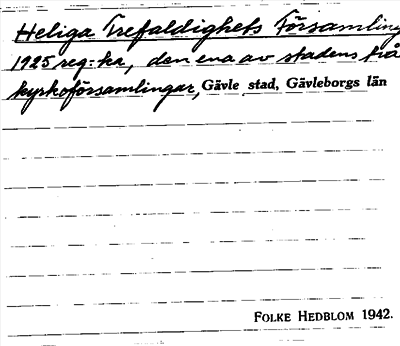 Heliga Trefaldighets Församling
1925 reg:ka, den ena av stadens två
kyrkoförsamlingar, Gävle stad, Gävleborgs län
FOLKE HEDBLOM 1942.